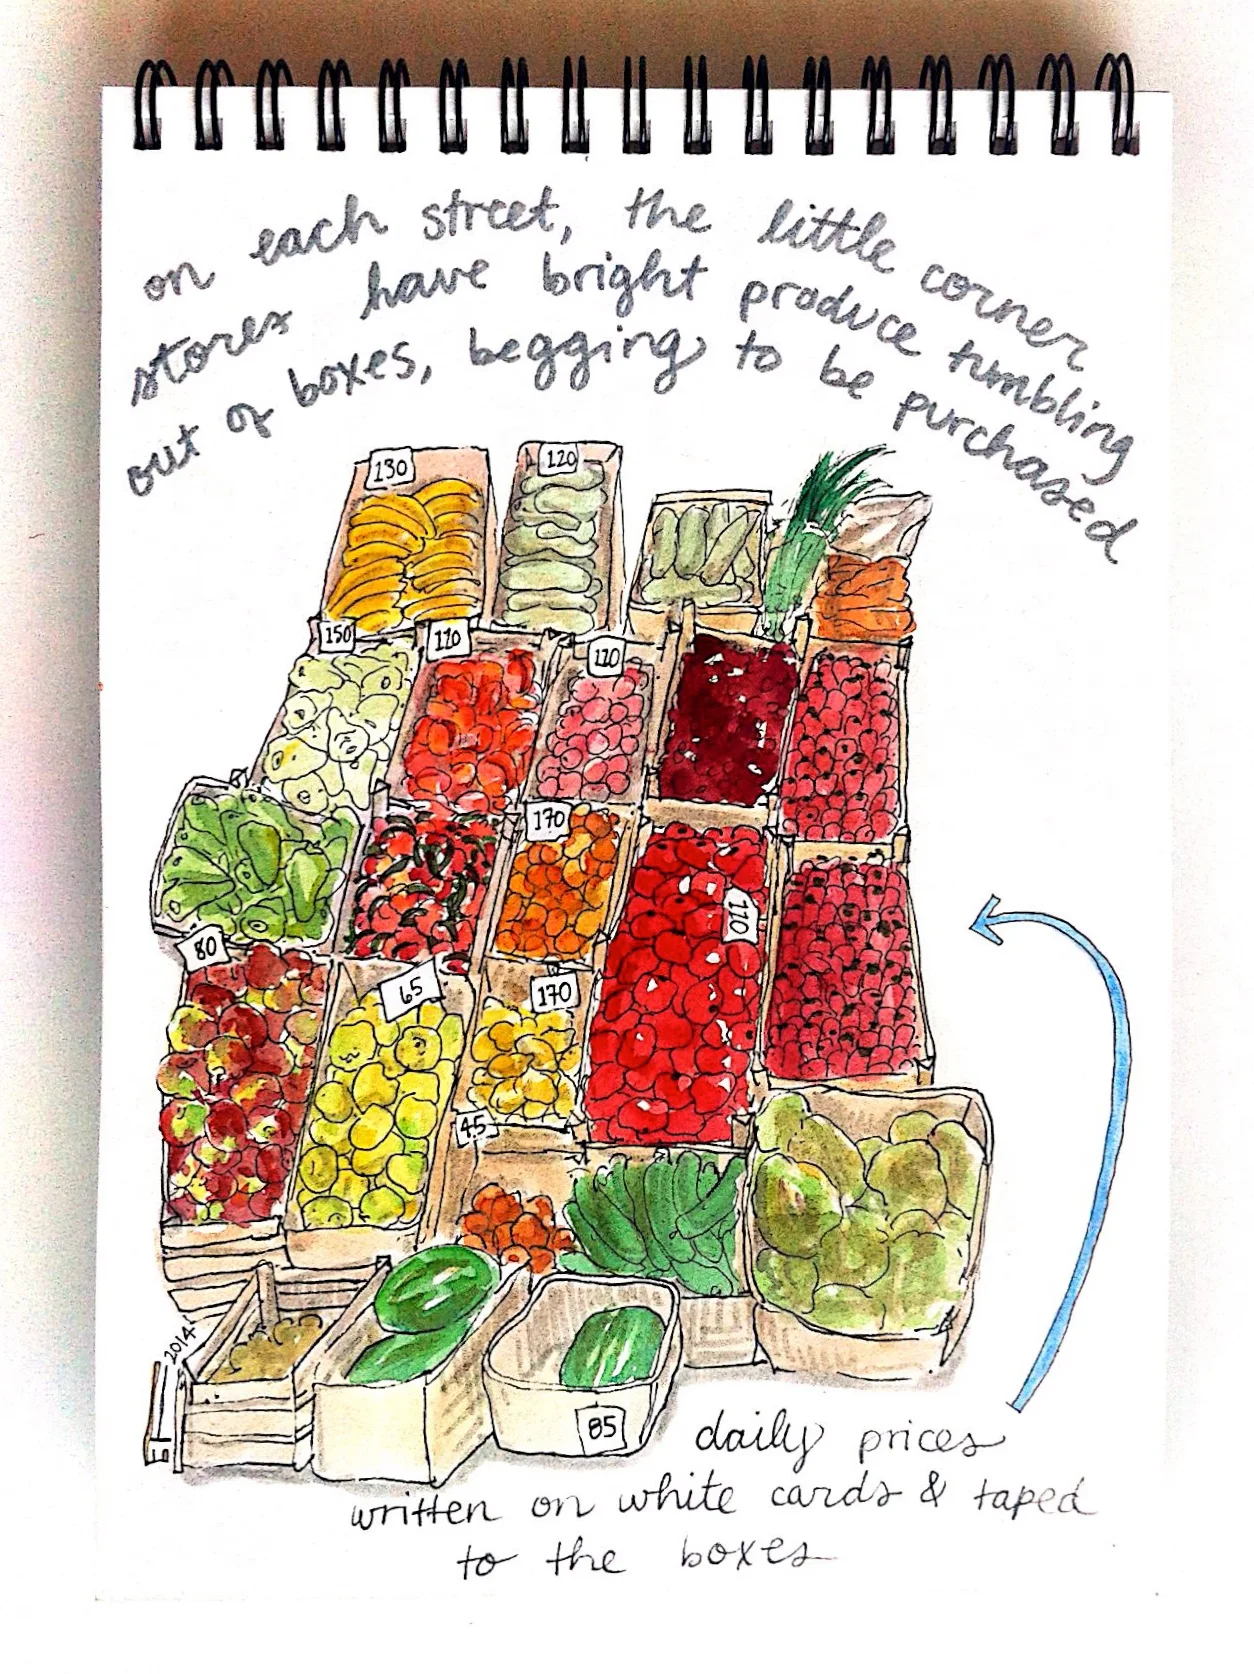 on each street, the little corner
stores have bright produce tumbling
out of boxes, begging to be purchased
130
120
150
120
120
170
110
80
65
170
45
85
2014
daily prices
written on white cards & taped
to the boxes